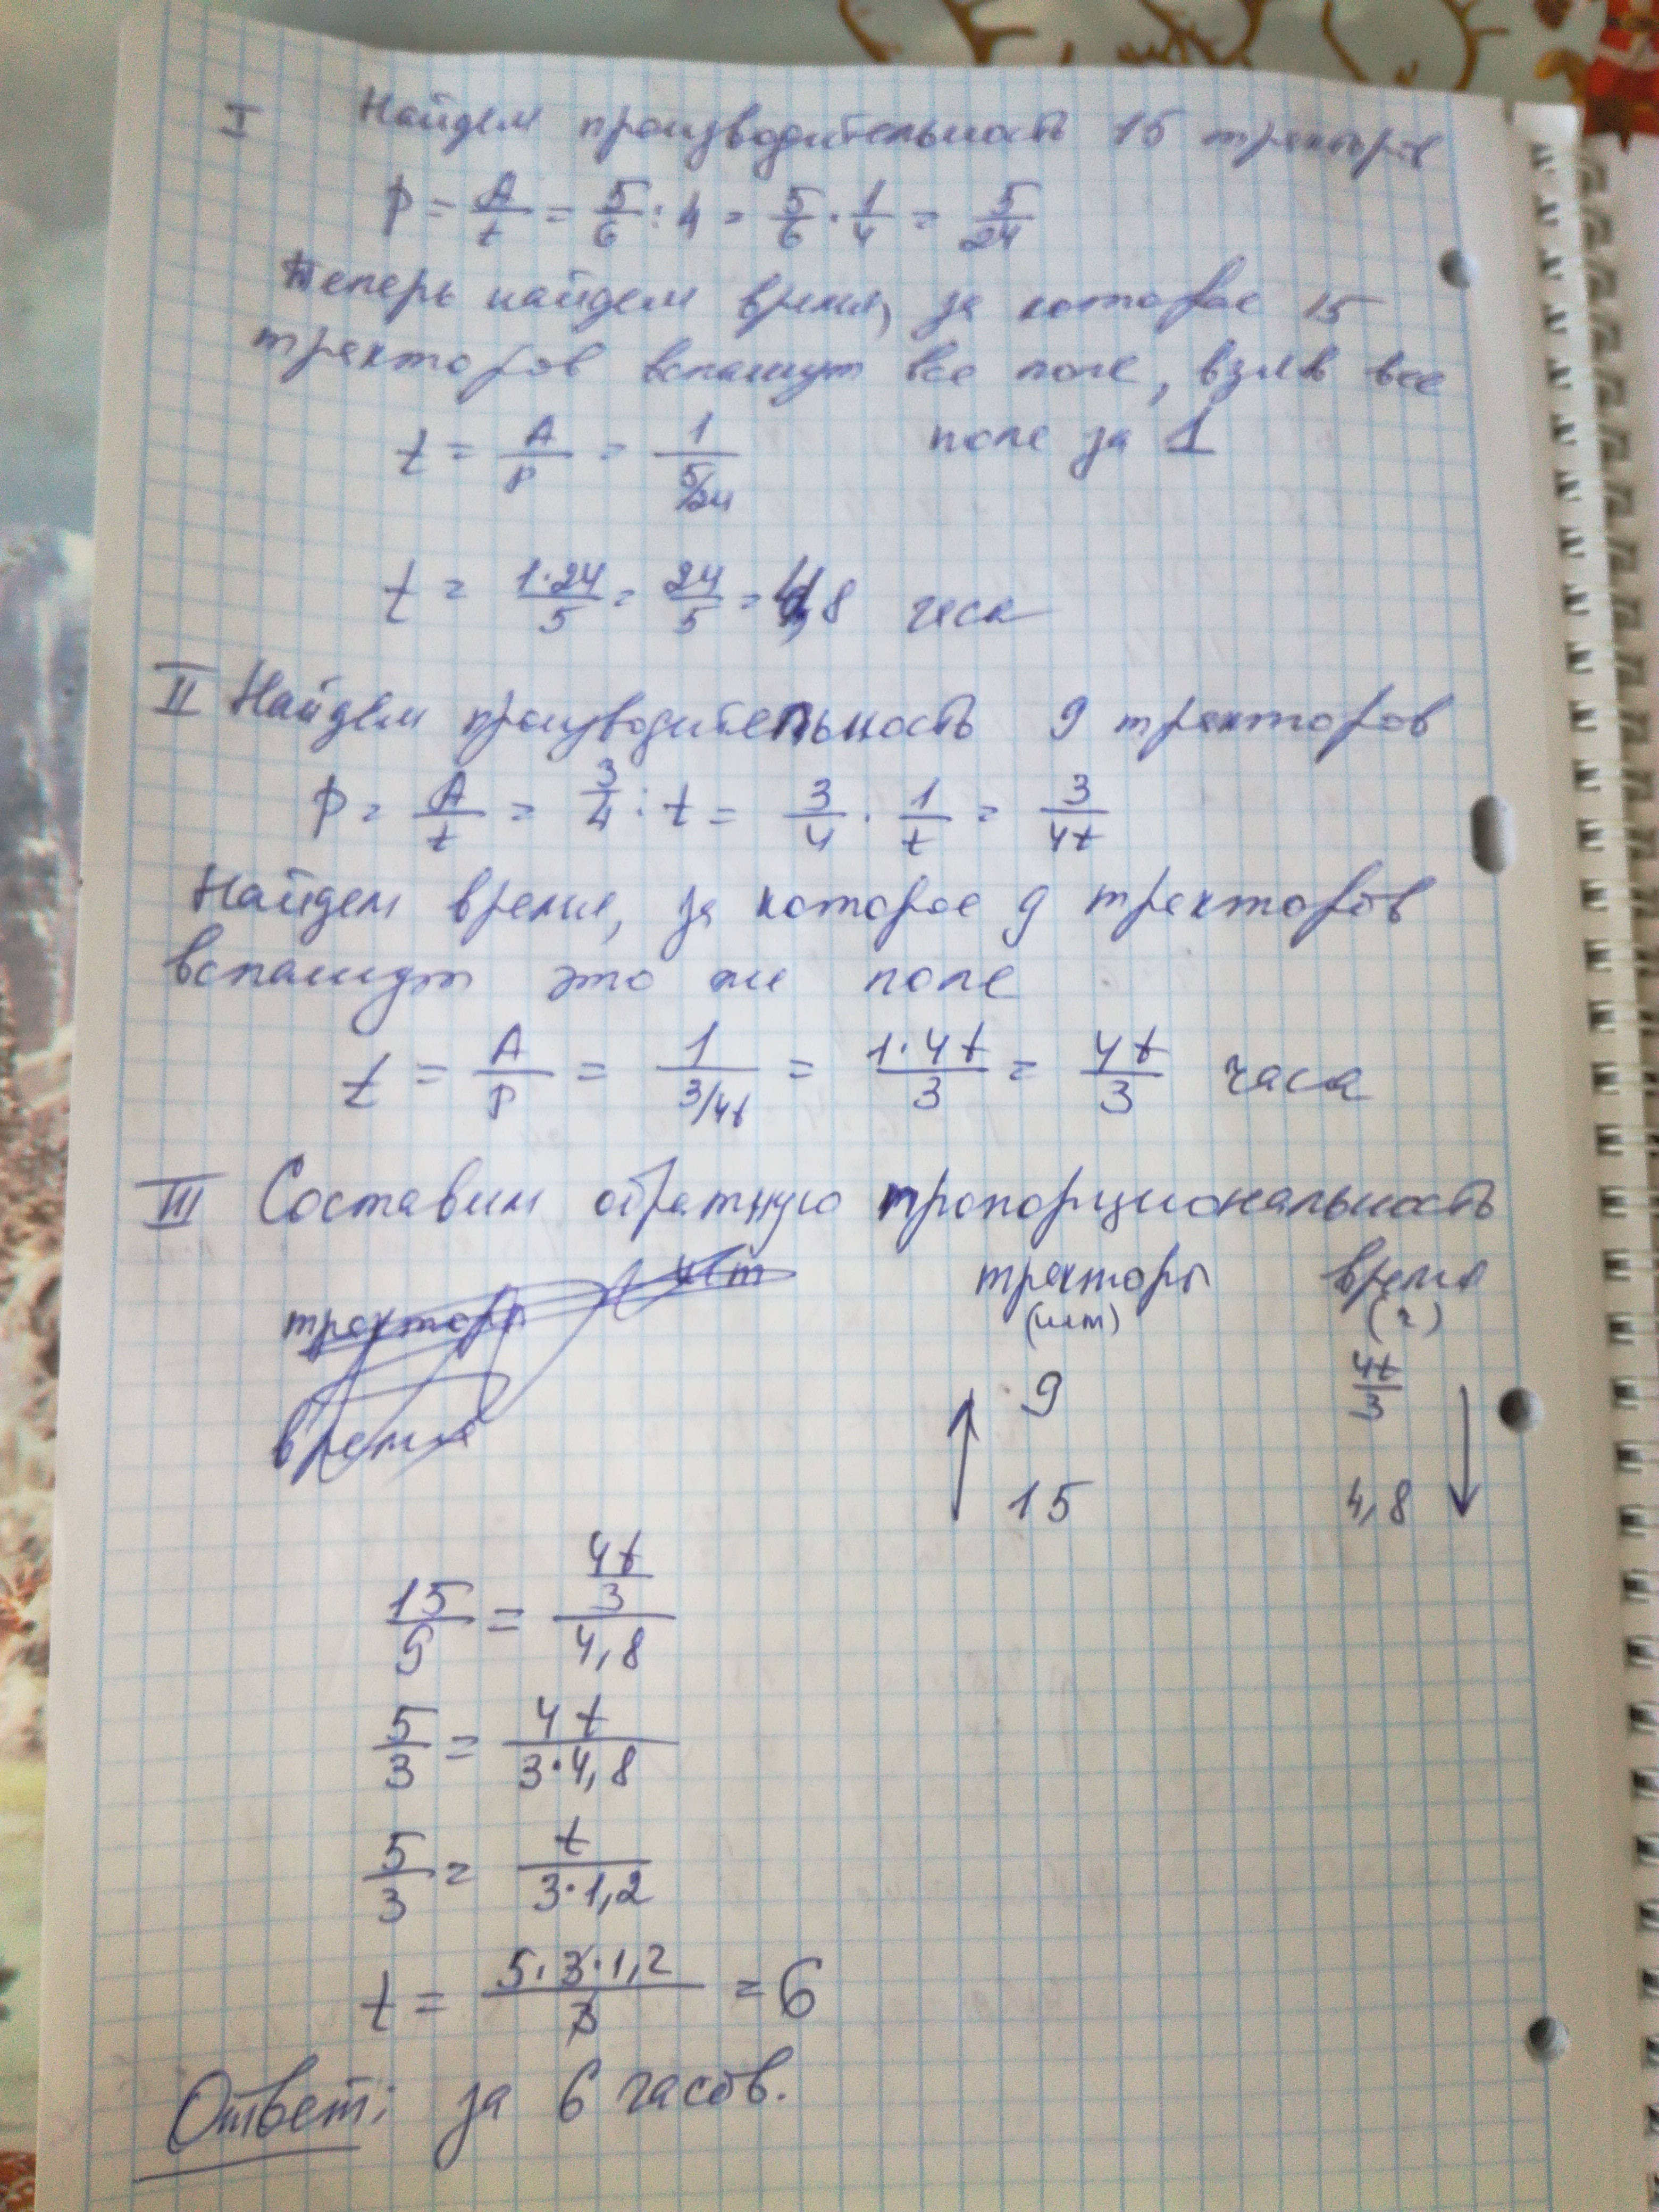 I Найдем производительность 15 тракторов
P = A/t = 5/6 : 4 = 5/6 · 1/4 = 5/24
Теперь найдем время, за которое 15
тракторов вспашут все поле, взяв все
поле за 1
t = A/P = 1/(5/24)
t = 1·24/5 = 24/5 = 4,8 часа
II Найдем производительность 9 тракторов
P = A/t = 3/4 : t = 3/4 · 1/t = 3/4t
Найдем время, за которое 9 тракторов
вспашут это же поле
t = A/P = 1/(3/4t) = 1·4t/3 = 4t/3 часа
III Составим обратную пропорциональность
трактора шт
время
тракторы время
(шт) (ч)
9 4t/3
15 4,8
15/9 = (4t/3)/4,8
5/3 = 4t/(3·4,8)
5/3 = t/(3·1,2)
t = 5·3·1,2/3 = 6
Ответ: за 6 часов.